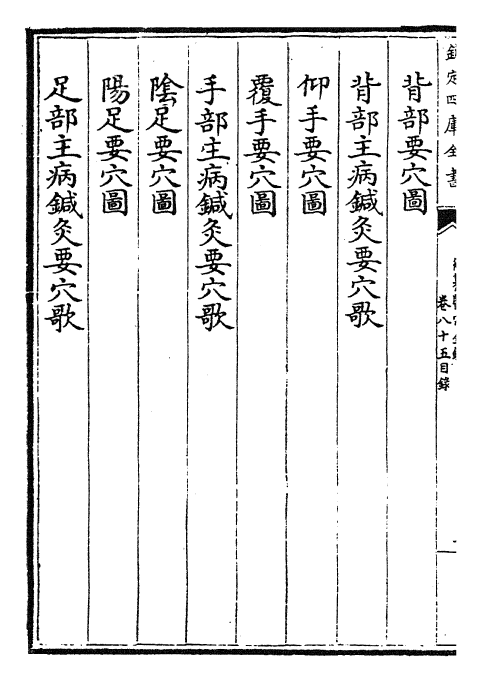 欽定四庫全書
卷八十五目錄
背部要穴圖
背部主病鍼灸要穴歌
仰手要穴圖
覆手要穴圖
手部主病鍼灸要穴歌
陰足要穴圖
陽足要穴圖
足部主病鍼灸要穴歌